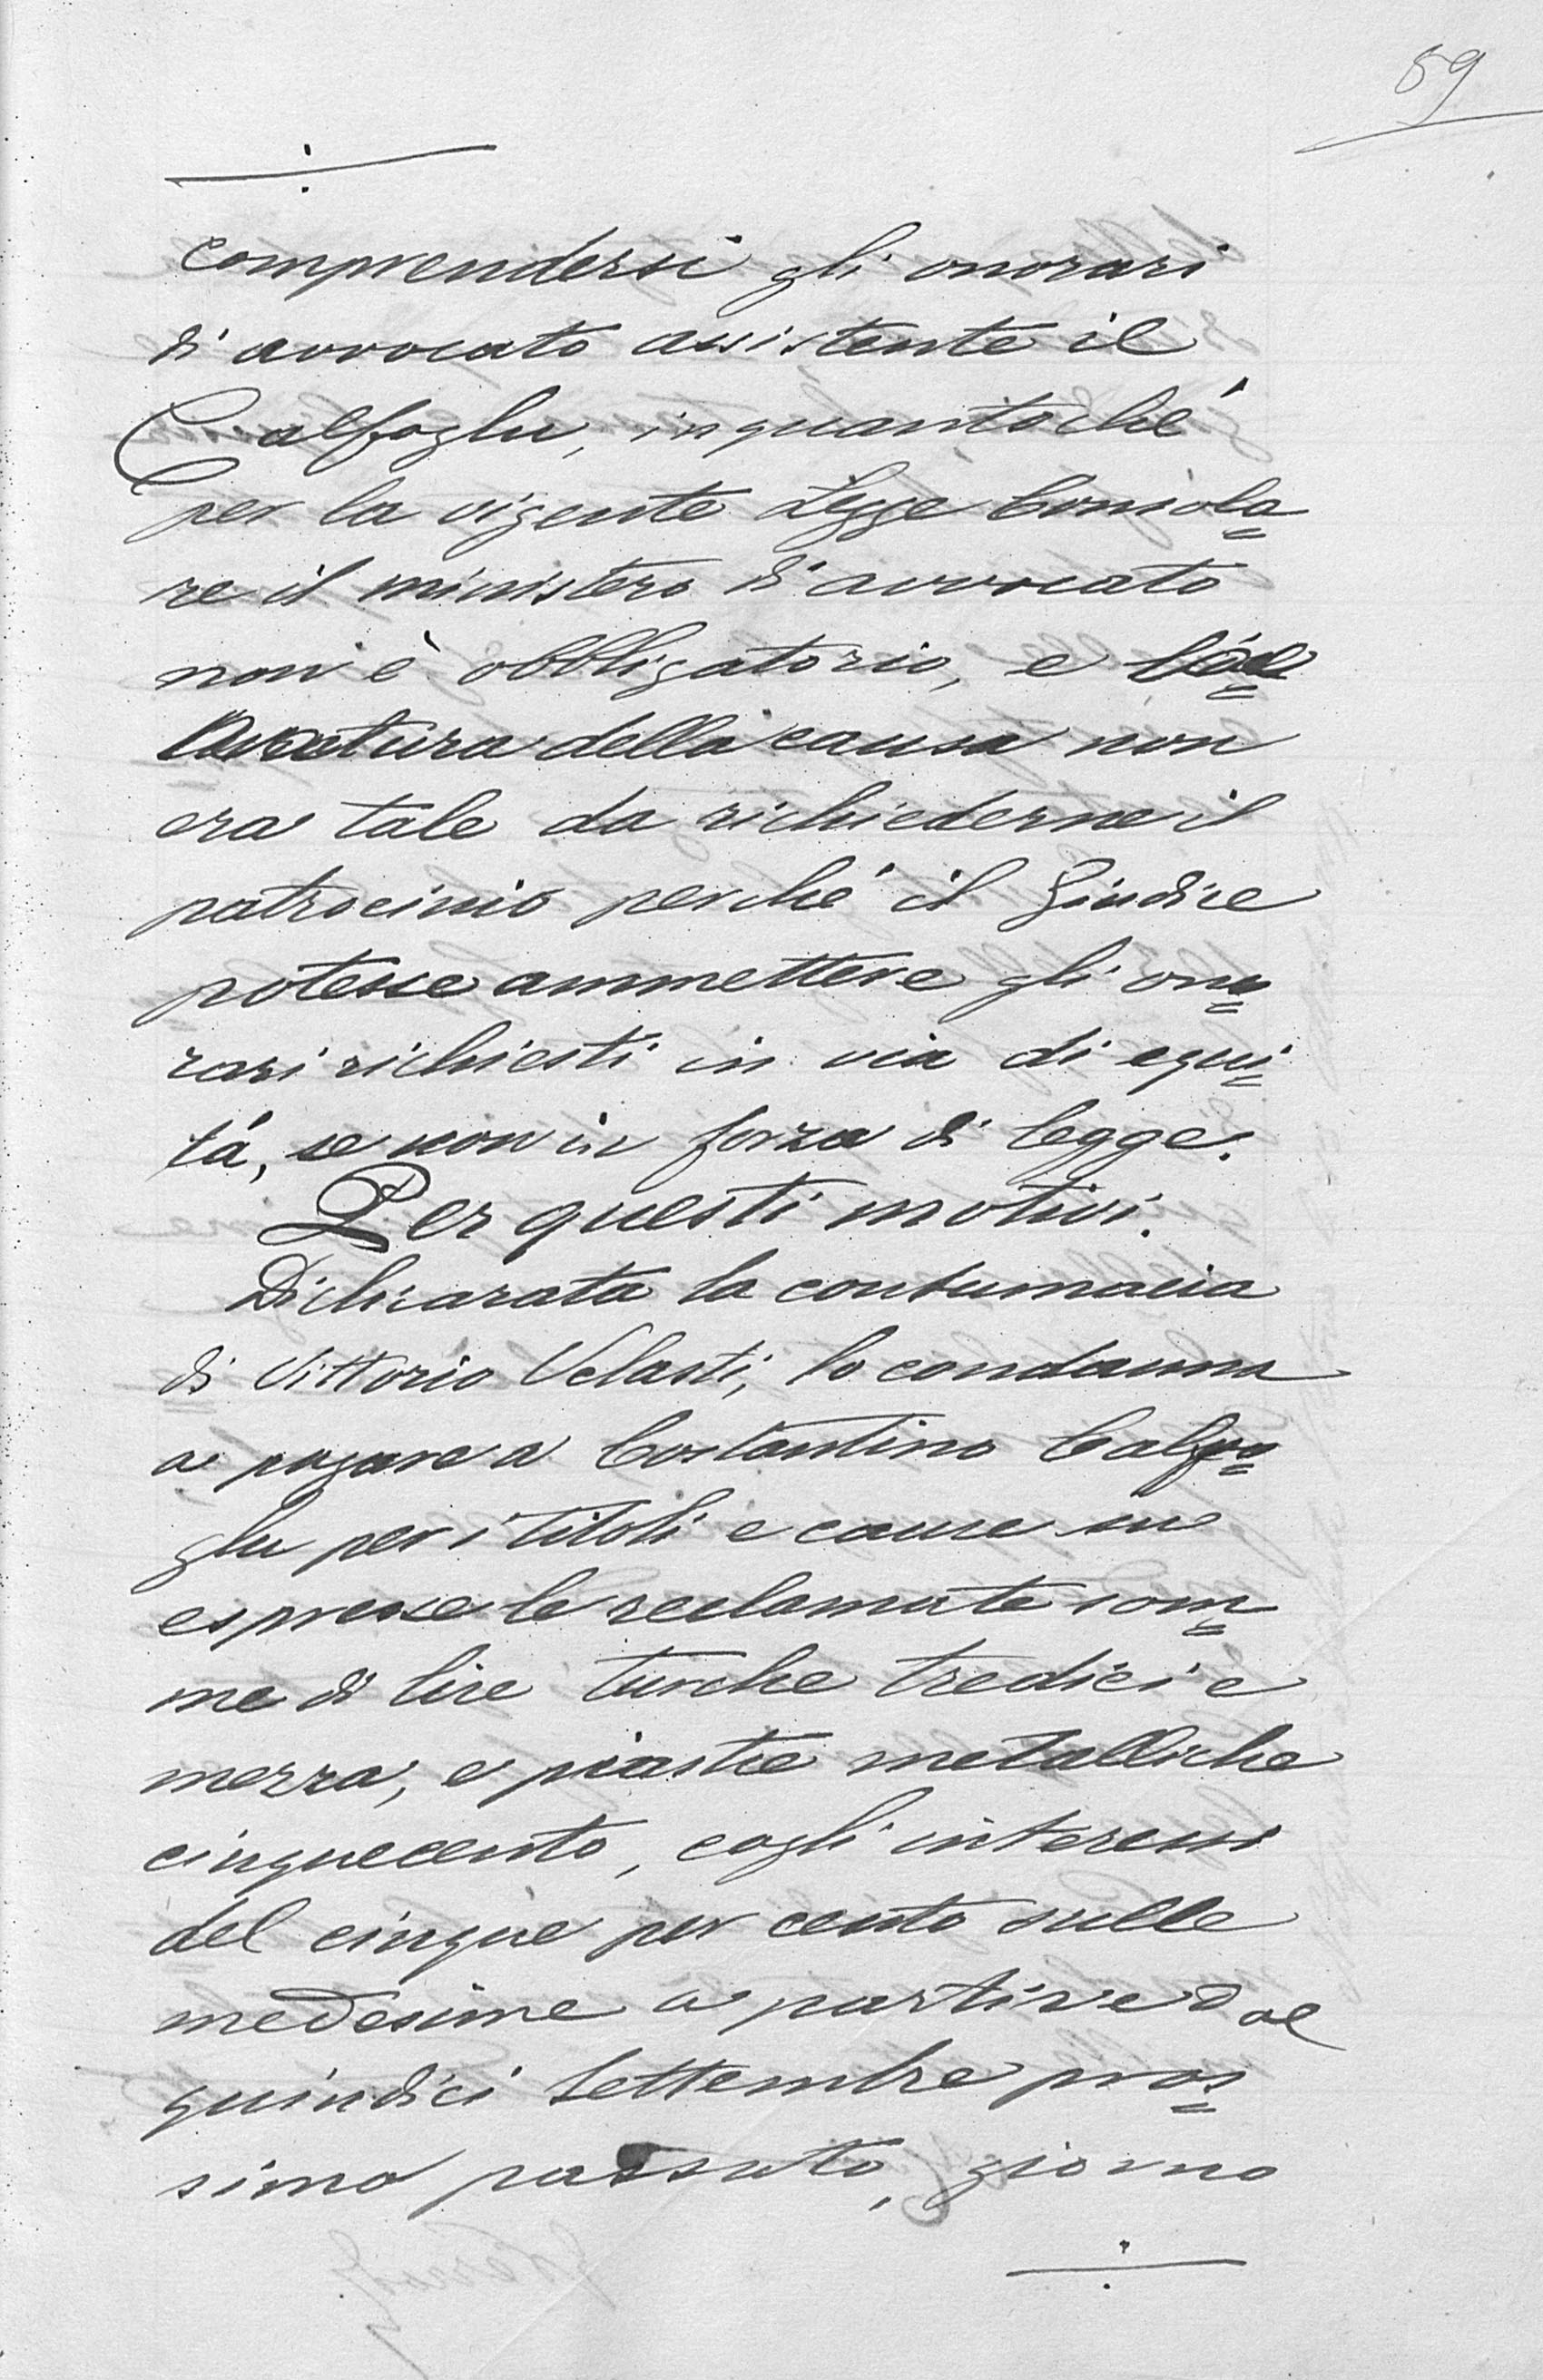 59
comprendersi gli onorari
di avvocato assistente il
Calfoglu, inquantochè
per la vigente Legge Consola=
re il ministero di avvocato
non è obbligatorio, e
natura della causa non
era tale da richiederne il
patrocinio perchè il Giudice
potesse ammettere gli ono=
rari richiesti in via di equi=
tà, se non in forza di legge.
Per questi motivi.
Dichiarata la contumacia
di Vittorio Velasti, lo condanna
a pagare a Costantino Calfo=
glu per i titoli e cause in
espresse le reclamate som=
me di lire turche tredici e
mezza, e piastre metalliche
cinquecento, cogli interessi
del cinque per cento sulle
medesime a partire dal
quindici Settembre pros=
simo passato, giorno